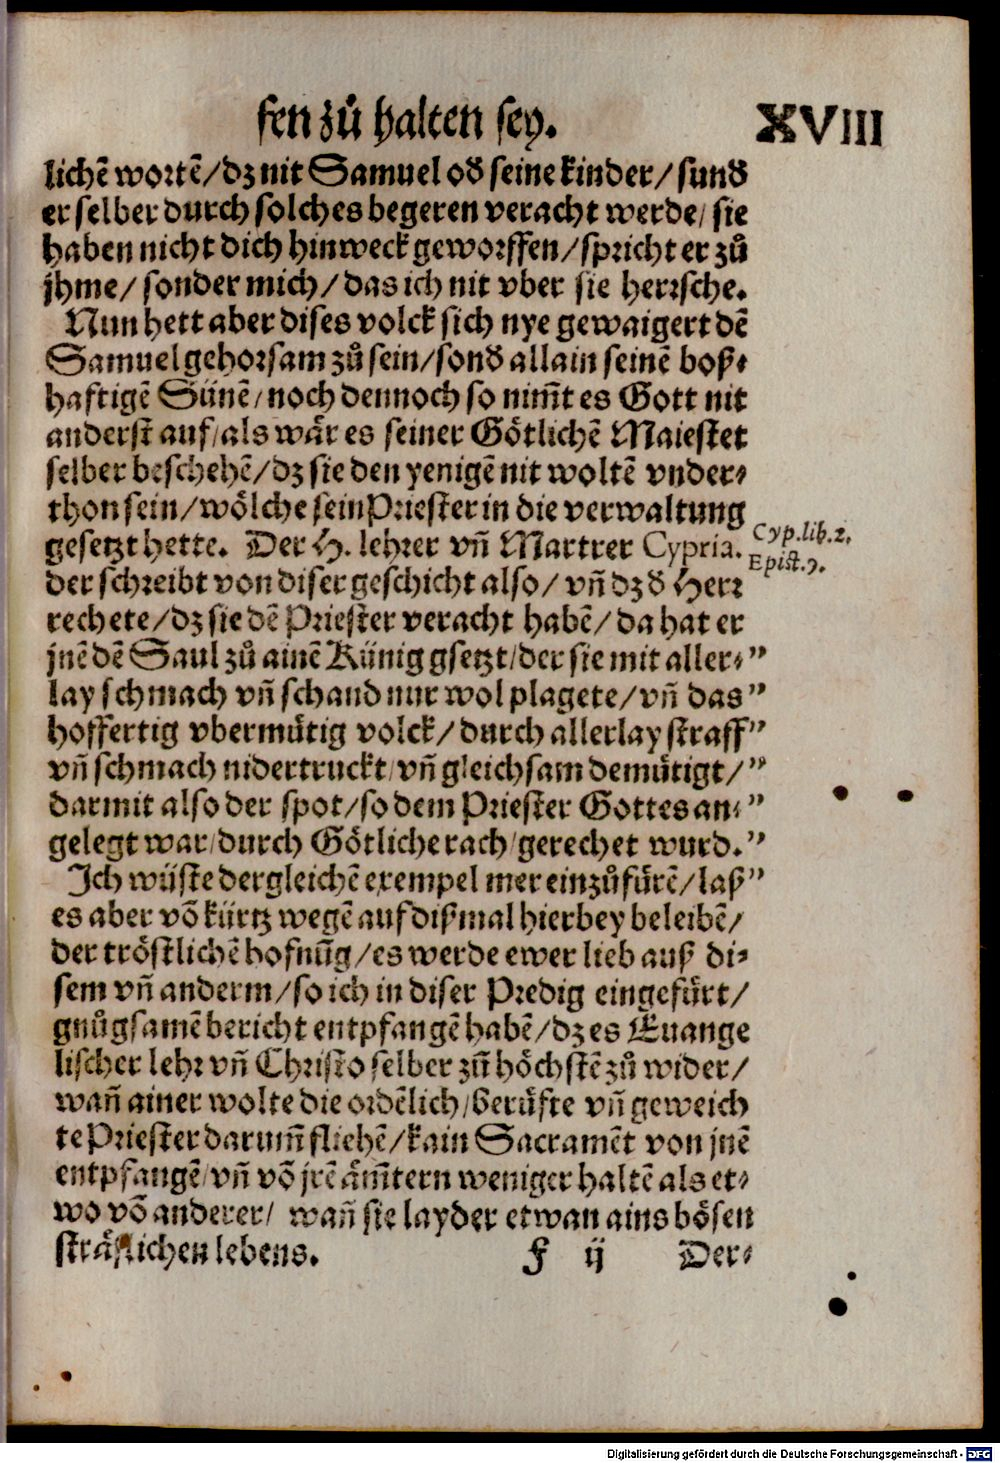 fen zů halten sey. XVIII
lichẽ wortẽ / dz nit Samuel oď seine kinder / sunď
er selber durch solches begeren veracht werde / sie
haben nicht dich hinweck geworffen / spricht er zů
jhme / sonder mich / das ich nit vber sie herrsche.
Nun hett aber dises volck sich nye gewaigert dẽ
Samuel gehorsam zů sein / sonď allain seinẽ boß⸗
haftigẽ Sünẽ / noch dennoch so nim̃t es Gott nit
anderst auf / als wär es seiner Götlichẽ Maiestet
selber beschehẽ / dz sie den yenigẽ nit woltẽ vnder⸗
thon sein / wölche sein Priester in die verwaltung
gesetzt hette. Der H. lehrer vñ Martrer Cypria.
Cyp. lib. 2.
Epist. 9.
der schreibt von diser geschicht also / vñ dz ď Herr
rechete / dz sie dẽ Priester veracht habẽ / da hat er
jnẽ dẽ Saul zů ainẽ Künig gsetzt / der sie mit aller⸗ "
lay schmach vñ schand nur wol plagete / vñ das "
hoffertig vbermütig volck / durch allerlay straff "
vñ schmach nidertruckt / vñ gleichsam demütigt / "
darmit also der spot / so dem Priester Gottes an⸗ "
gelegt war / durch Götliche rach / gerechet wurd. "
Ich wüste dergleichẽ exempel mer einzůfürẽ / laß "
es aber võ kürtz wegẽ auf dißmal hierbey beleibẽ /
der tröstlichẽ hofnũg / es werde ewer lieb auß di⸗
sem vñ anderm / so ich in diser Predig eingefürt /
gnůgsamẽ bericht entpfangẽ habẽ / dz es Euange
lischer lehr vñ Christo selber zũ höchstẽ zů wider /
wañ ainer wolte die ordẽlich / berüfte vñ geweich
te Priester darum̃ fliehẽ / kain Sacramẽt von jnẽ
entpfangẽ / vñ võ jrẽ äm̃tern weniger haltẽ als et⸗
wo võ anderer / wañ sie layder etwan ains bösen
sträflichen lebens.
F ij Der⸗
Digitalisierung gefördert durch die Deutsche Forschungsgemeinschaft - DFG